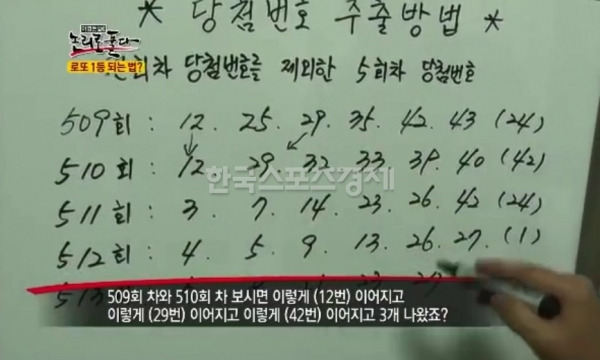 * 당첨번호 추출방법 *
로또 1등 되는 법?
당첨번호를 제외한 5회차 당첨번호
509회 : 12. 25. 29. 35. 42. 43 (24)
510회 : 12 29 32 33 39. 40 (42)
한국스포츠경제
511회 : 3. 7. 14. 23. 26. 42 (24)
512회 : 4. 5. 9. 13. 26. 27. (1)
509회 차와 510회 차 보시면 이렇게 (12번) 이어지고
이렇게 (29번) 이어지고 이렇게 (42번) 이어지고 3개 나왔죠?